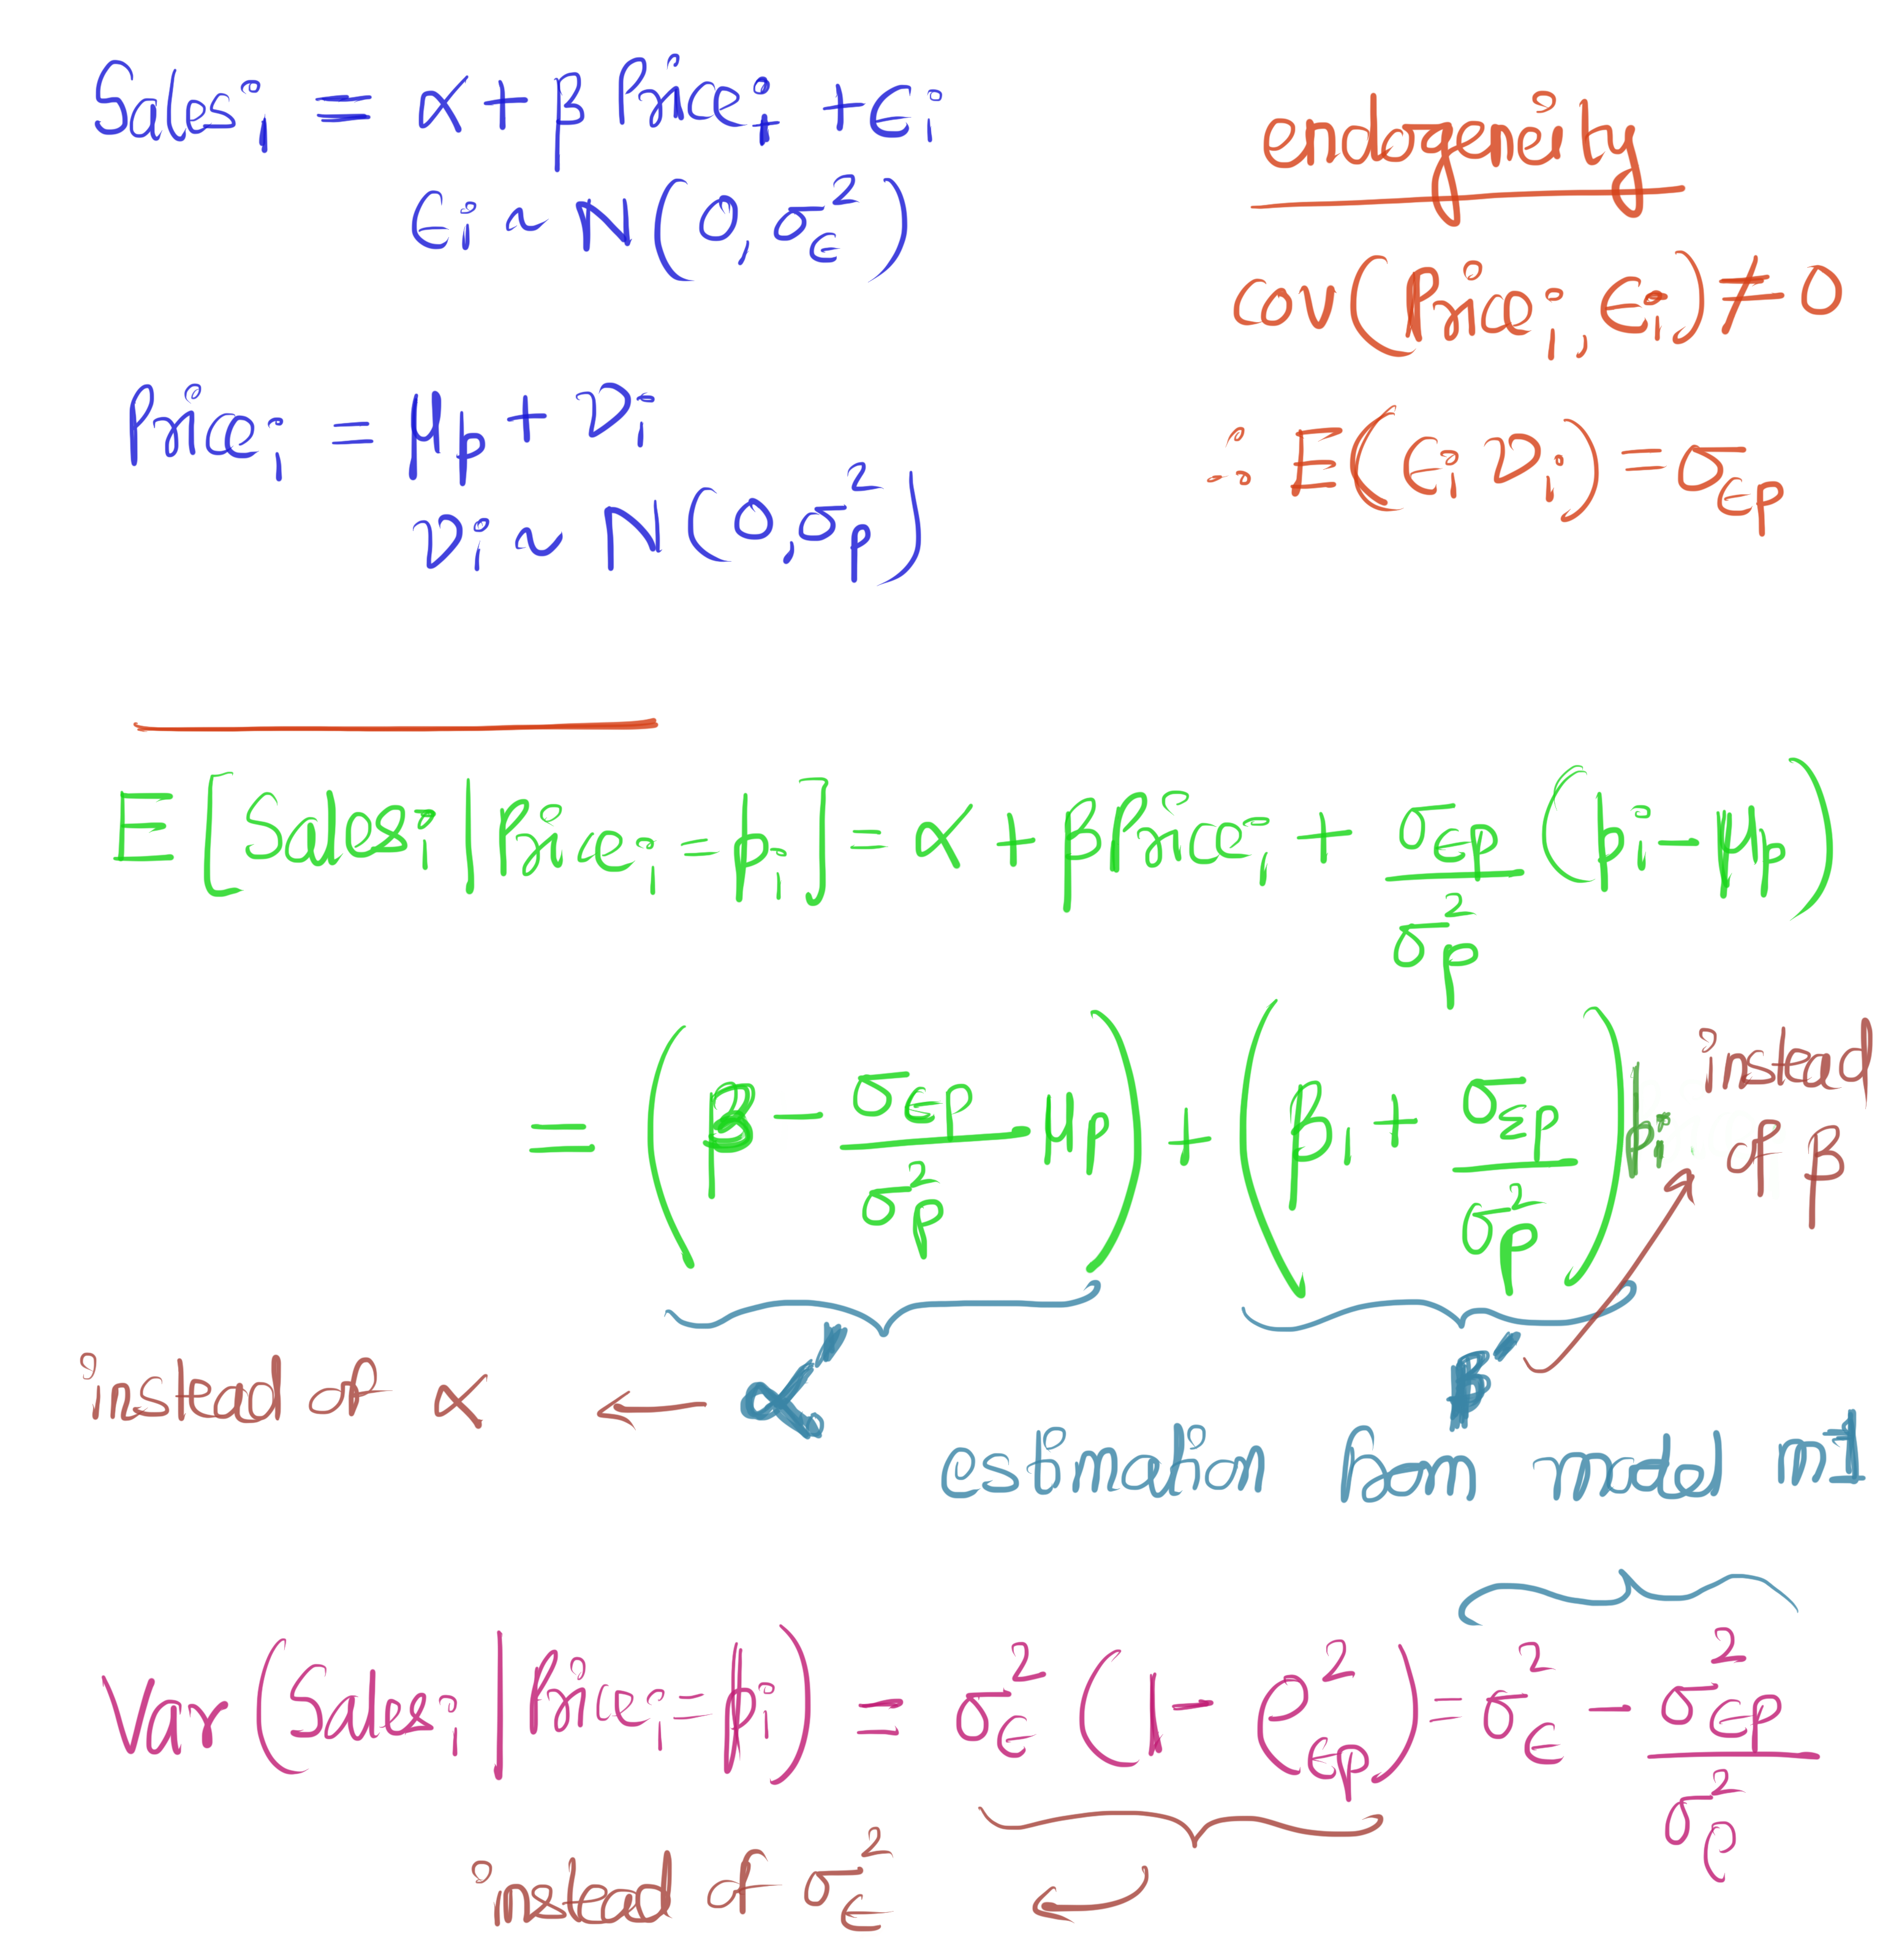 Sales_i = α + β Price_i + ϵ_i
ϵ_i ~ N(0, σ_ϵ^2)
Price_i = μ_p + ν_i
ν_i ~ N(0, σ_p^2)
endogeneity
cov(Price_i, ϵ_i) ≠ 0
∴ E(ϵ_i ν_i) = σ_ϵp
E[Sales_i | Price_i = p_i] = α + β Price_i + σ_ϵp / σ_p^2 (p_i - μ_p)
= (β - σ_ϵp / σ_p^2 μ_p) + (β_1 + σ_εp / σ_p^2) p_i
instead
of β
instead of α ← α' β'
estimation from model m1
Var(Sales_i | Price_i = p_i) = σ_ϵ^2 (1 - ρ_ϵp^2) = σ_ϵ^2 - σ_ϵp^2 / σ_p^2
instead of σ_ϵ^2 ←